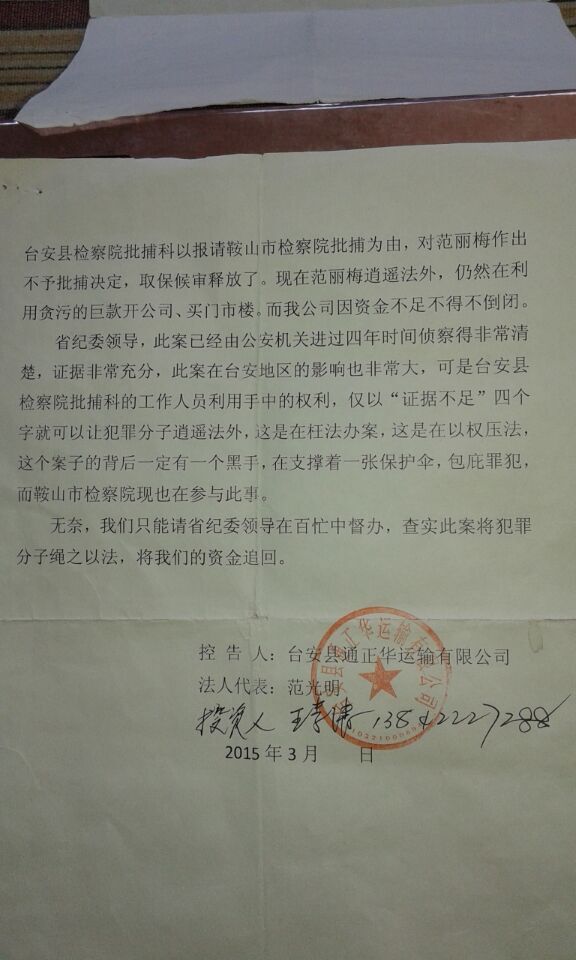 台安县检察院批捕科以报请鞍山市检察院批捕为由，对范丽梅作出
不予批捕决定，取保候审释放了。现在范丽梅逍遥法外，仍然在利
用贪污的巨款开公司、买门市楼。而我公司因资金不足不得不倒闭。
省纪委领导，此案已经由公安机关进过四年时间侦察得非常清
楚，证据非常充分，此案在台安地区的影响也非常大，可是台安县
检察院批捕科的工作人员利用手中的权利，仅以“证据不足”四个
字就可以让犯罪分子逍遥法外，这是在枉法办案，这是在以权压法，
这个案子的背后一定有一个黑手，在支撑着一张保护伞，包庇罪犯，
而鞍山市检察院现也在参与此事。
无奈，我们只能请省纪委领导在百忙中督办，查实此案将犯罪
分子绳之以法，将我们的资金追回。
控 告 人：台安县通正华运输有限公司
法人代表：范光明
投资人 王
2015 年 3 月 日
台安县通正华运输有限公司